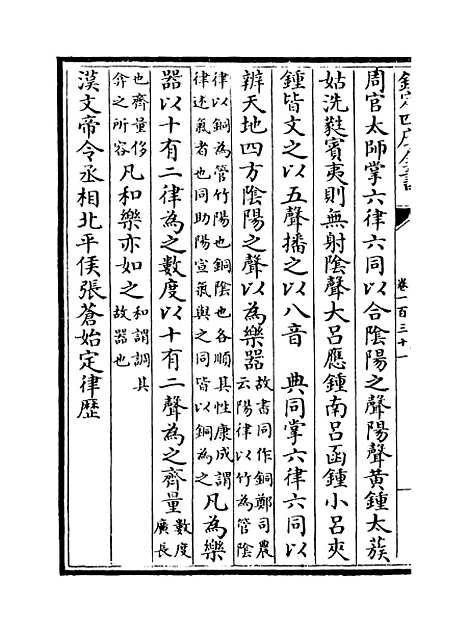 欽定四庫全書
卷一百三十一
周官太師掌六律六同以合陰陽之聲陽聲黄鍾太蔟
姑洗蕤賓夷則無射陰聲大呂應鍾南呂函鍾小呂夾
鍾皆文之以五聲播之以八音　典同掌六律六同以
辨天地四方陰陽之聲以為樂器故書同作銅鄭司農云陽律以竹為管陰
律以銅為管竹陽也銅陰也各順其性康成謂律述氣者也同助陽宣氣與之同皆以銅為之凡為樂
器以十有二律為之數度以十有二聲為之齊量數度廣長
也齊量侈弇之所容凡和樂亦如之和謂調其故器也
漢文帝令丞相北平侯張蒼始定律歷